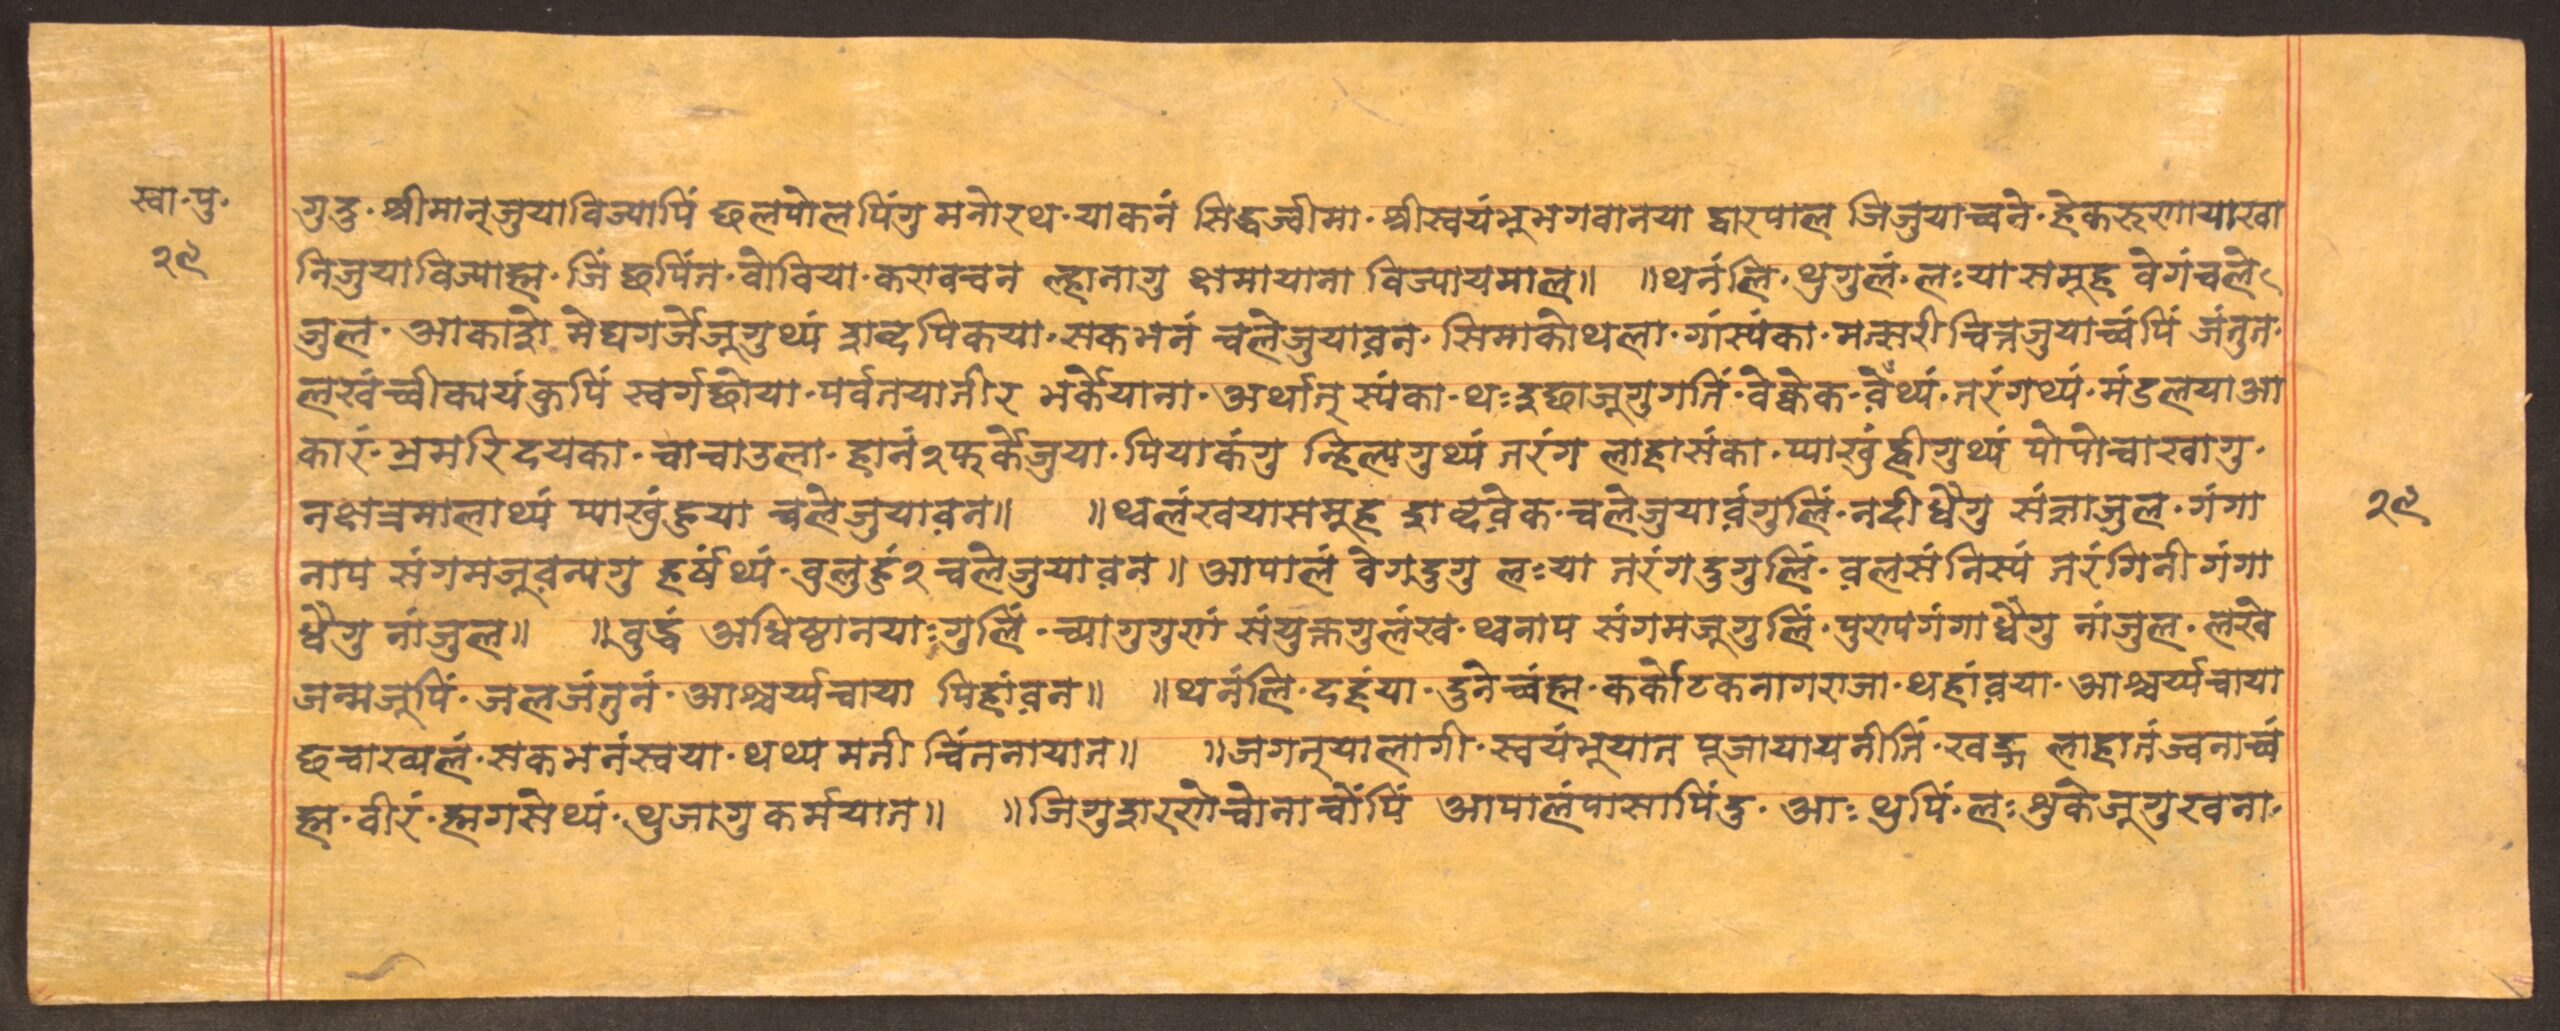 स्वा॰पु॰
२९
गुदु॰श्रीमान्जुयाविज्यापिं छलपोलपिंगु मनोरथ॰याकनं सिद्धर्ज्वीमा॰श्रीस्वयंभूभगवानया द्वारपाल जिजुयाच्वने॰हेकरुणायाखा
निजुयाविज्याह्म॰जिं छपिंत॰वोविया॰करावचन ल्हानागु क्षमायाना विज्यायमाल॥ ॥थनंलि॰थुगुलं॰लःया समूह वेगंचले
जुल॰आकाशे मेघगर्जेजूगुथ्यं शब्दपिकया॰सकभनं चलेजुयाव़न॰सिमाकोथला॰गांस्यंका॰मत्सरी चित्तजुयाच्वंपिं जंतुत॰
लखं च्वीकायंकुपिं स्वर्गछोया॰पर्वतयातीर भर्केयाना॰अर्थात् स्यंका॰थःइछाजूगुगतिं॰वेक्वेक॰व़ँथ्यं॰तरंगथ्यं॰मंडलयाआ
कारं॰भ्रमरिदयका॰चाचाउला॰हानं२फर्केजुया॰पियाकंगु न्हिल्पगुथ्यं तरंग लाहासंका॰प्याखुंह्वीगुथ्यं पोपोचाखागु॰
नक्षत्रमालाथ्यं प्याखुंहुया चलेजुयाव़न॥ ॥थ्वलंखयासमूह शब्दव़ेक॰चलेजुयाव़ंगुलिं॰नदीधैगु संज्ञाजुल॰गंगा
२९
नाप संगमजूव़न्यगु हर्षंथ्यं॰वुलुहुं२चलेजुयाव़न॥आपालं वेगदुगु लःया तरंगदुगुलिं॰व़लसंनिस्यं तरंगिनी गंगा
धैगु नांजुल॥ ॥वुद्धं अधिष्ठानयाःगुलिं॰च्यागुगुणं संयुक्तगुलंख॰थ्वनाप संगमजूगुलिं॰पुण्यगंगाधैगु नांजुल॰लखे
जन्मजूपिं॰जलजंतुनं॰आश्चर्य्यचाया पिहांव़न॥ ॥थनंलि॰दहंया॰दुनेच्वंह्म॰कर्कोटकनागराजा॰थहांव़या॰आश्चर्य्यचाया
छचाख्यलं॰सकभनंस्वया॰थथ्य मती चिंतनायात॥ ॥जगत्यालागी॰स्वयंभूयात पूजायायनीतिं॰खड्ग लाहातंज्वनाच्वं
ह्म॰वीरं॰ह्मगसेथ्यं॰थुजागु कर्मयात॥ ॥जिगुशरणेच्वोनाच्वोंपिं आपालंपासापिंदु॰आः थुपिं॰लःथुकेजूगुखना॰